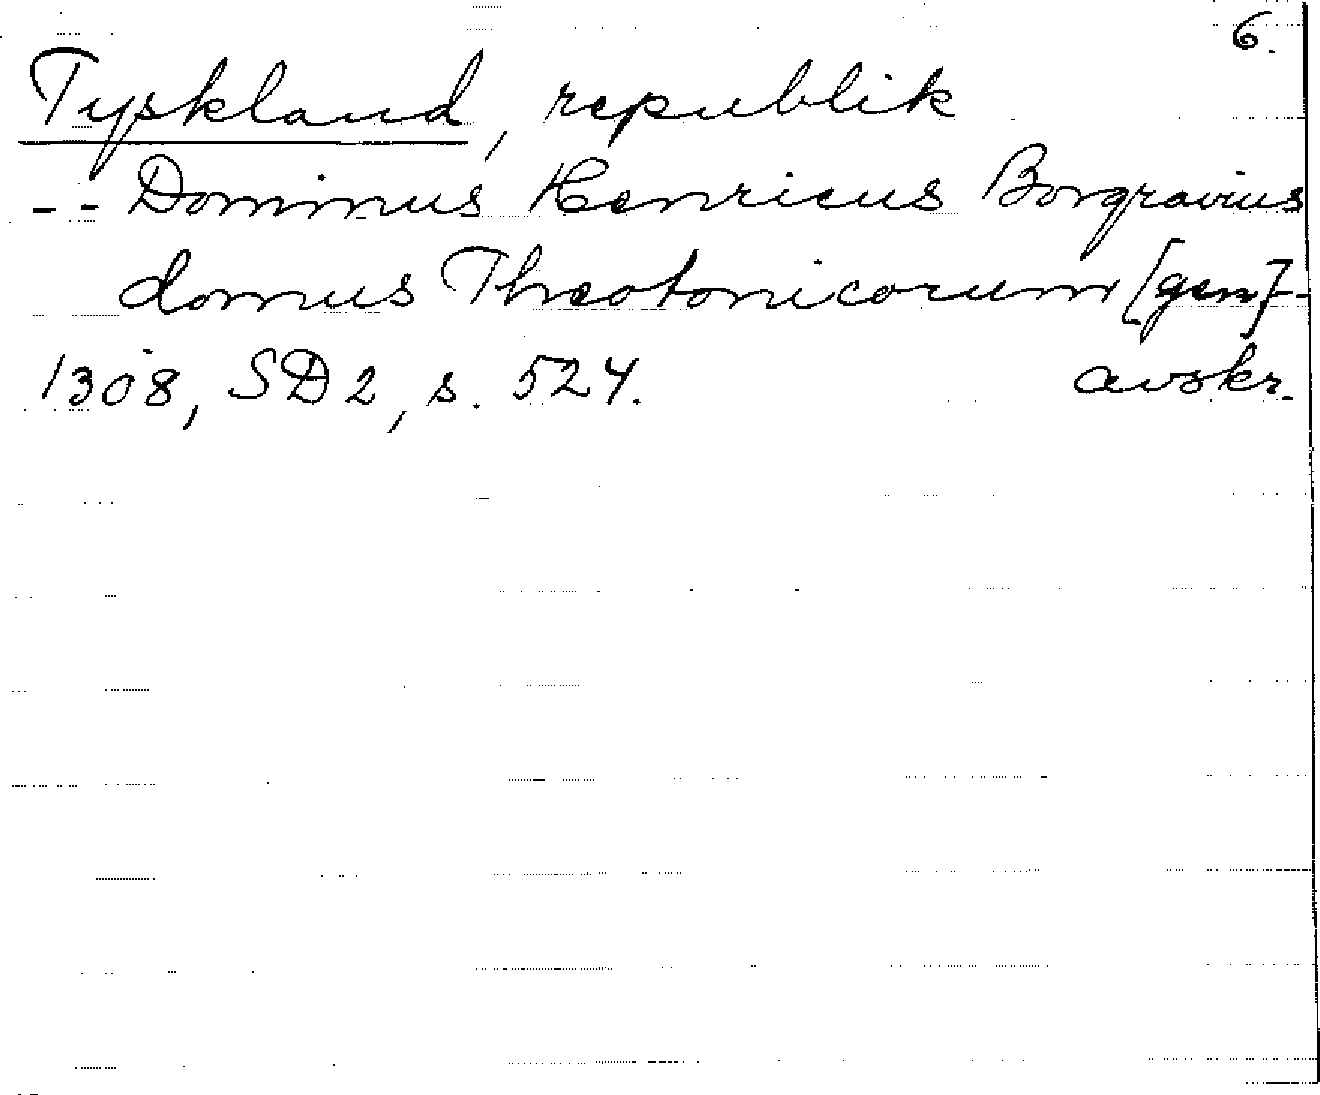 6.
Tyskland, republik
-- Dominus Henricus Borgravius
domus Theotonicorum [gen]--
1308, SD2, s. 524. avskr.